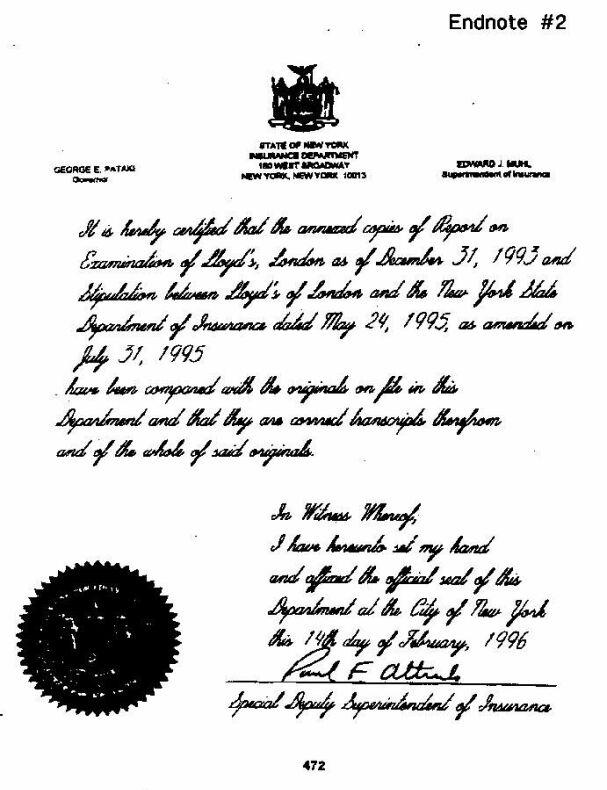 Endnote #2
STATE OF NEW YORK
INSURANCE DEPARTMENT
160 WEST BROADWAY
NEW YORK, NEW YORK 10013
GEORGE E. PATAKI
Governor
EDWARD J. MUHL
Superintendent of Insurance
It is hereby certified that the annexed copies of Report on
Examination of Lloyd's, London as of December 31, 1993 and
Stipulation between Lloyd's of London and the New York State
Department of Insurance dated May 24, 1995, as amended on
July 31, 1995
have been compared with the originals on file in this
Department and that they are correct transcripts therefrom
and of the whole of said originals.
In Witness Whereof,
I have hereunto set my hand
and affixed the official seal of this
Department at the City of New York
this 14th day of February, 1996
Paul F
Special Deputy Superintendent of Insurance
472